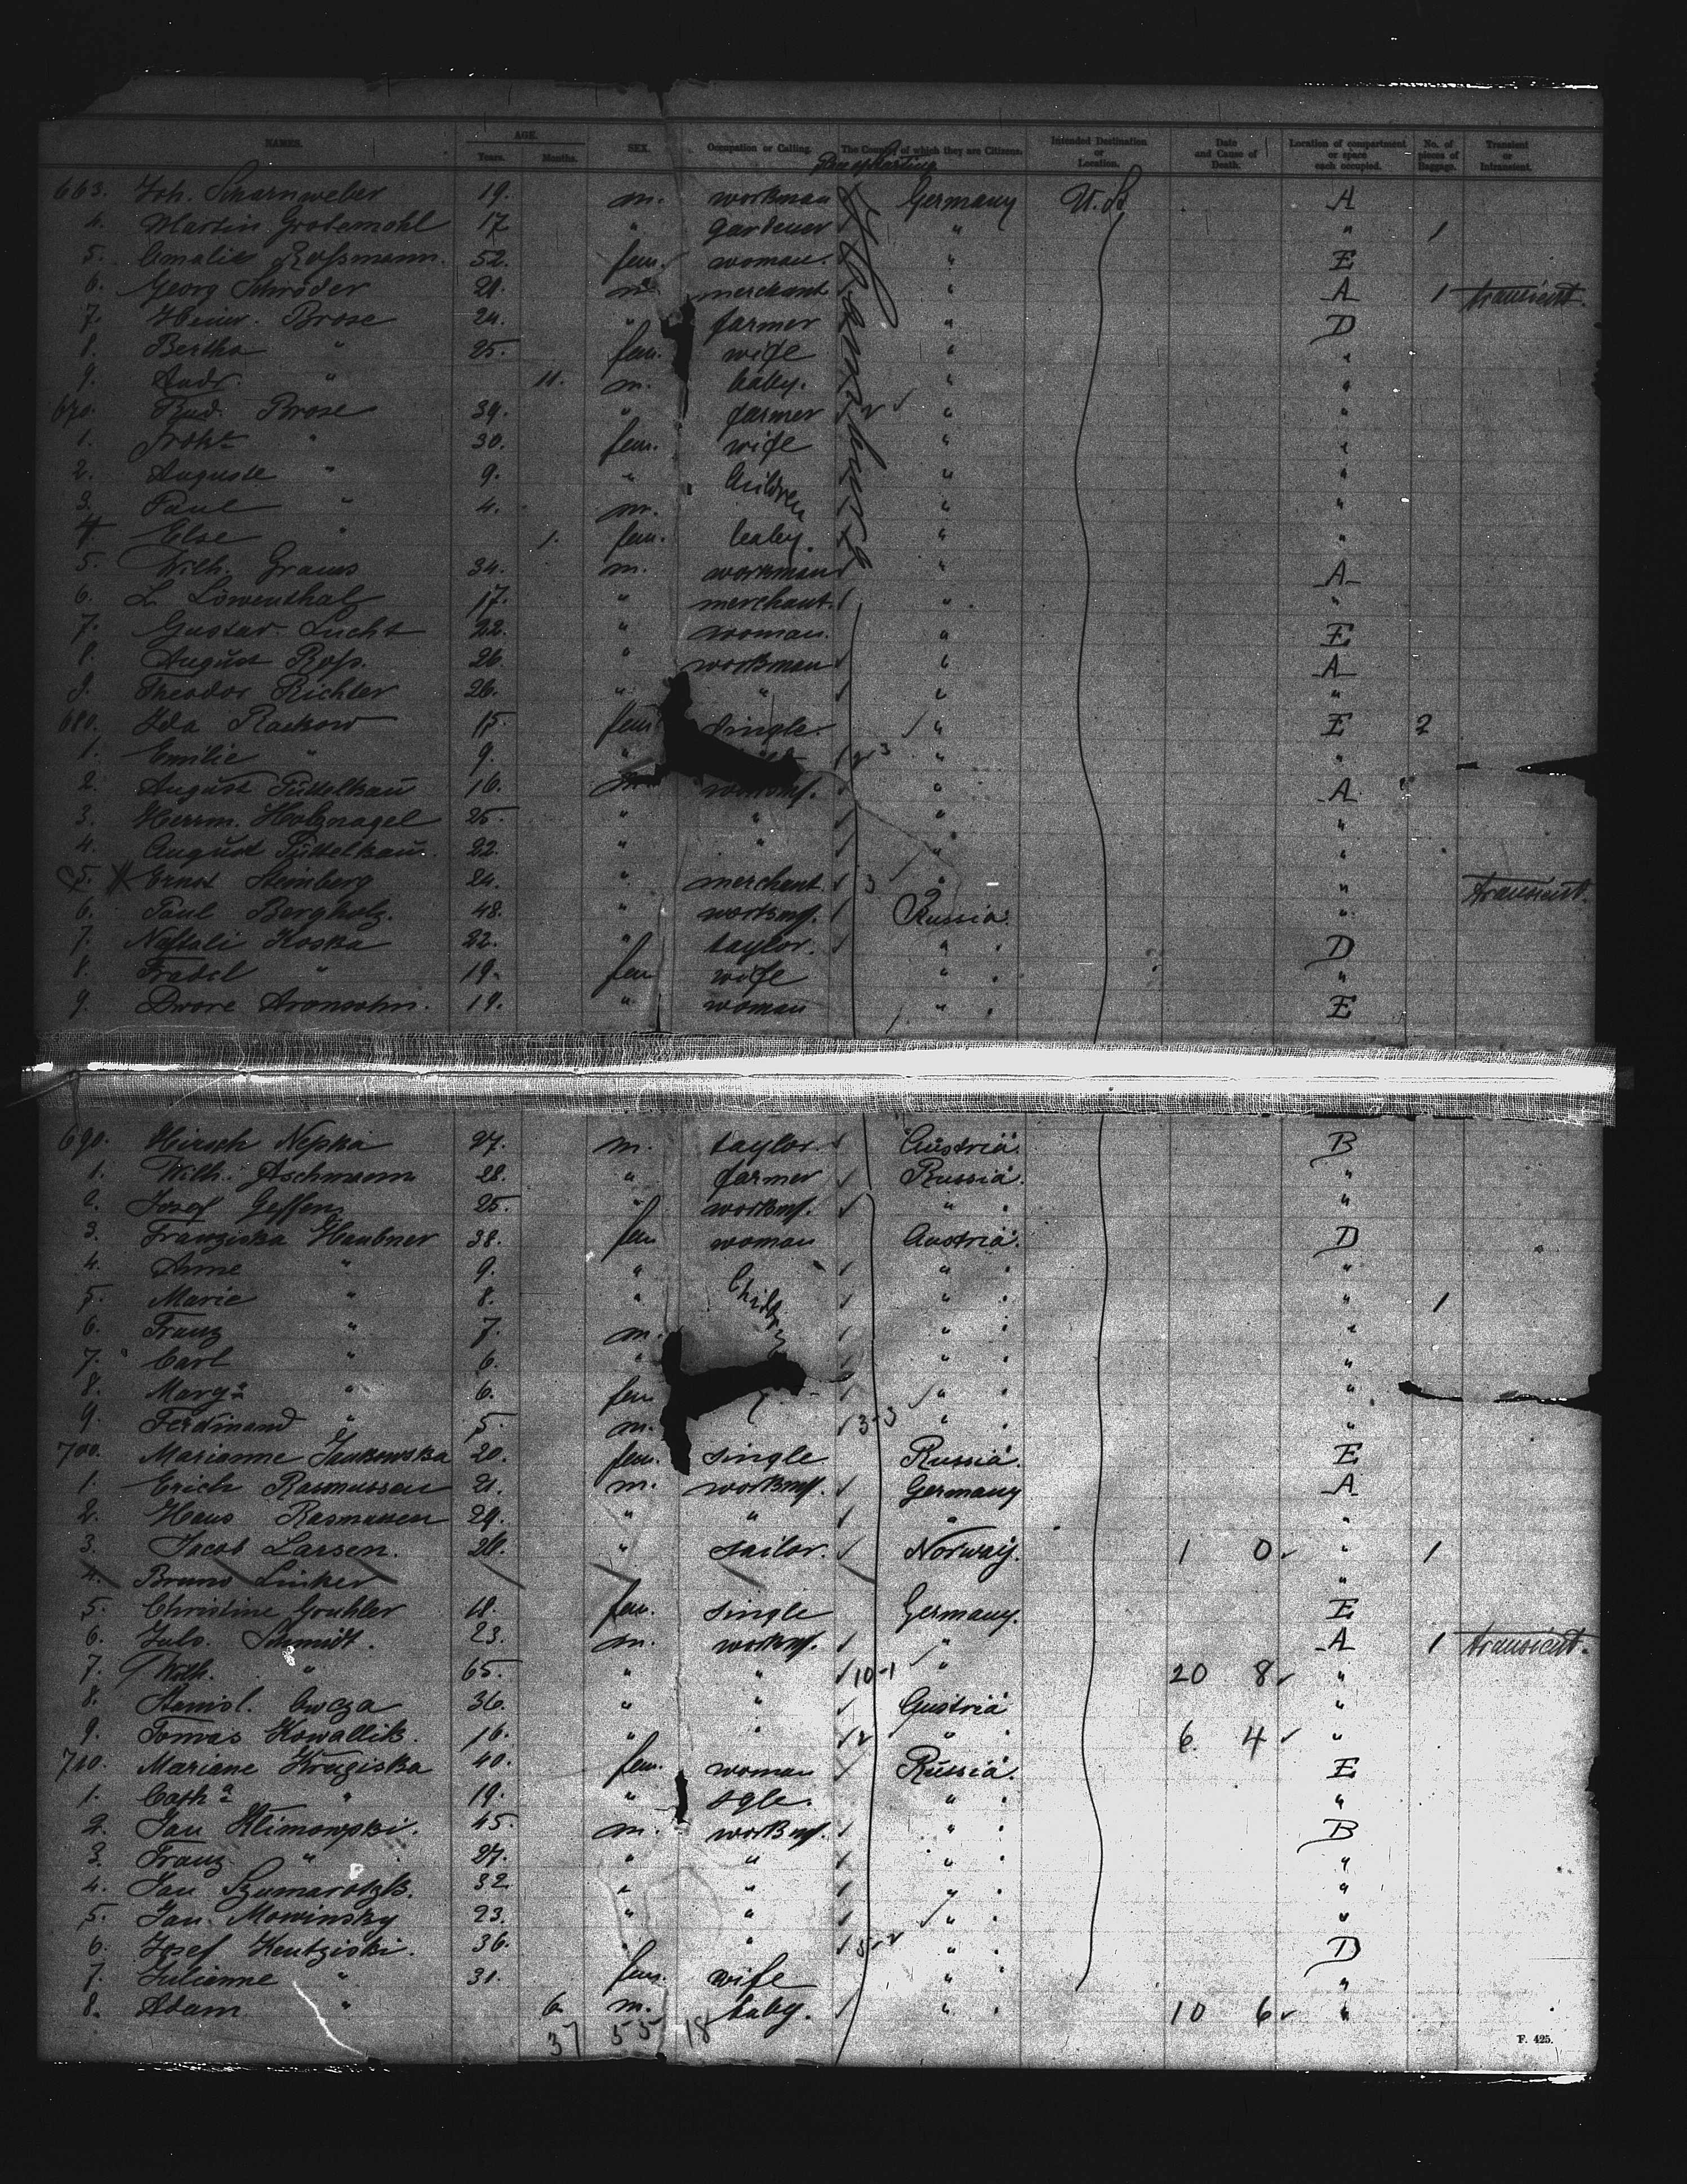 NAMES. AGE. Years. Months. SEX. Occupation or Calling. The Country of which they are Citizens. Intended Destination or Location. Date and Cause of Death. Location of compartment or space each occupied. No. of pieces of Baggage. Transient or Intransient.
663. Joh. Scharnweber 19. m. workman Germany U. St. A
4. Martin Grotemohl 17 " gardener " " 1
5. Amalie Roßmann. 52. fem. woman. " E
6. Georg Schröder 21. m. merchant " A 1 transient.
7. Heinr. Brose 24. " farmer " D
8. Bertha " 25. fem. wife " "
9. Andr. " 11. m. baby. " "
670. Rud. Brose 39. " farmer " "
1. " 30. fem. wife " "
2. Auguste " 9. " Children " "
3. Paul " 4. m. " "
4 Else " 1. fem. baby. " "
5. Wilh. Grams 34. m. workman " A
6. L Löwenthal 17. " merchant. " "
7. Gustav. Lucht 22. " woman. " E
8. August Roß. 26. " workman " A
9. Theodor Richter 26. " " " "
680. Ida Rackow 15. fem single. " E 2
1. Emilie " 9. " " "
2. August Tüttelkau 16. m " A
3. Herrm. Holznagel 25. " " " "
4. August Tüttelkau. 22. " " " "
5. Ernst Steinberg 24. " merchant. 3 " " transient.
6. Paul Bergholz. 48. " Russia. "
7. Naftali Koska 22. " taylor. " D
8. Fradel " 19. fem wife " "
9. Dwore Aronsohn. 19. " woman " E
690. Hirsch Nepka 27. m. taylor. Austria. B
1. Wilh. Aschmann 28. " farmer Russia. "
2. Josef Geffen. 25. " " "
3. Franziska Haubner 38. fem woman Austria. D
4. Anne " 9. " Children " "
5. Marie " 8. " " " 1
6. Franz " 7. m. " "
7. Carl " 6. " " "
8. Marg. " 6. fem " "
9. Ferdinand " 5. m. 3-3 " "
700. Marianne Jankowska 20. fem. single Russia. E
1. Erich Rasmussen 21. m. Germany A
2. Hans Rasmussen 29. " " " "
3. Jacob Larsen. 26. " sailor. Norway. 1 0 " 1
4. Bruno Linker "
5. Christine Gruhler 18. fem. single Germany. E
6. Schmidt. 23. m. " A 1 transient.
7. Wilh. " 65. " " 10-1 " 20 8 "
8. Stanisl. 36. " " Austria "
9. Tomas Kowallik. 16. " " " 6 4 "
710. Mariane Kruziska 40. fem. woman Russia. E
1. Cath. " 19. " sgle. " "
2. Jan Klimowski. 45. m. " B
3. Franz " 27. " " " "
4. Jan 32 " " " "
5. Jan. Mowinsky 23. " " " "
6. Josef Kentziski. 36. " " " D
7. Julianne " 31. fem. wife " "
8. Adam " 6 m. baby. " 10 6 "
37 55 18
F. 425.